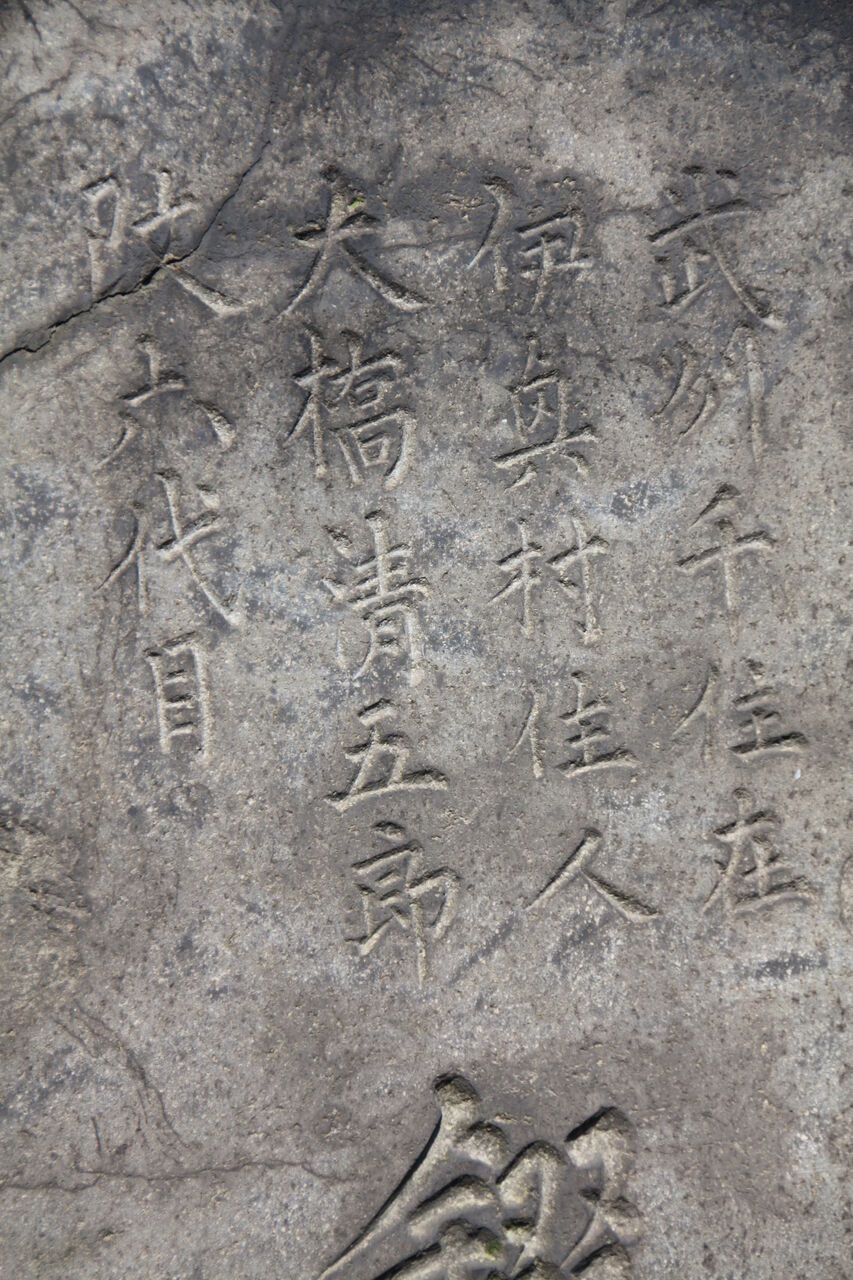 武州千住在
伊興村住人
大橋清五郎
改六代目